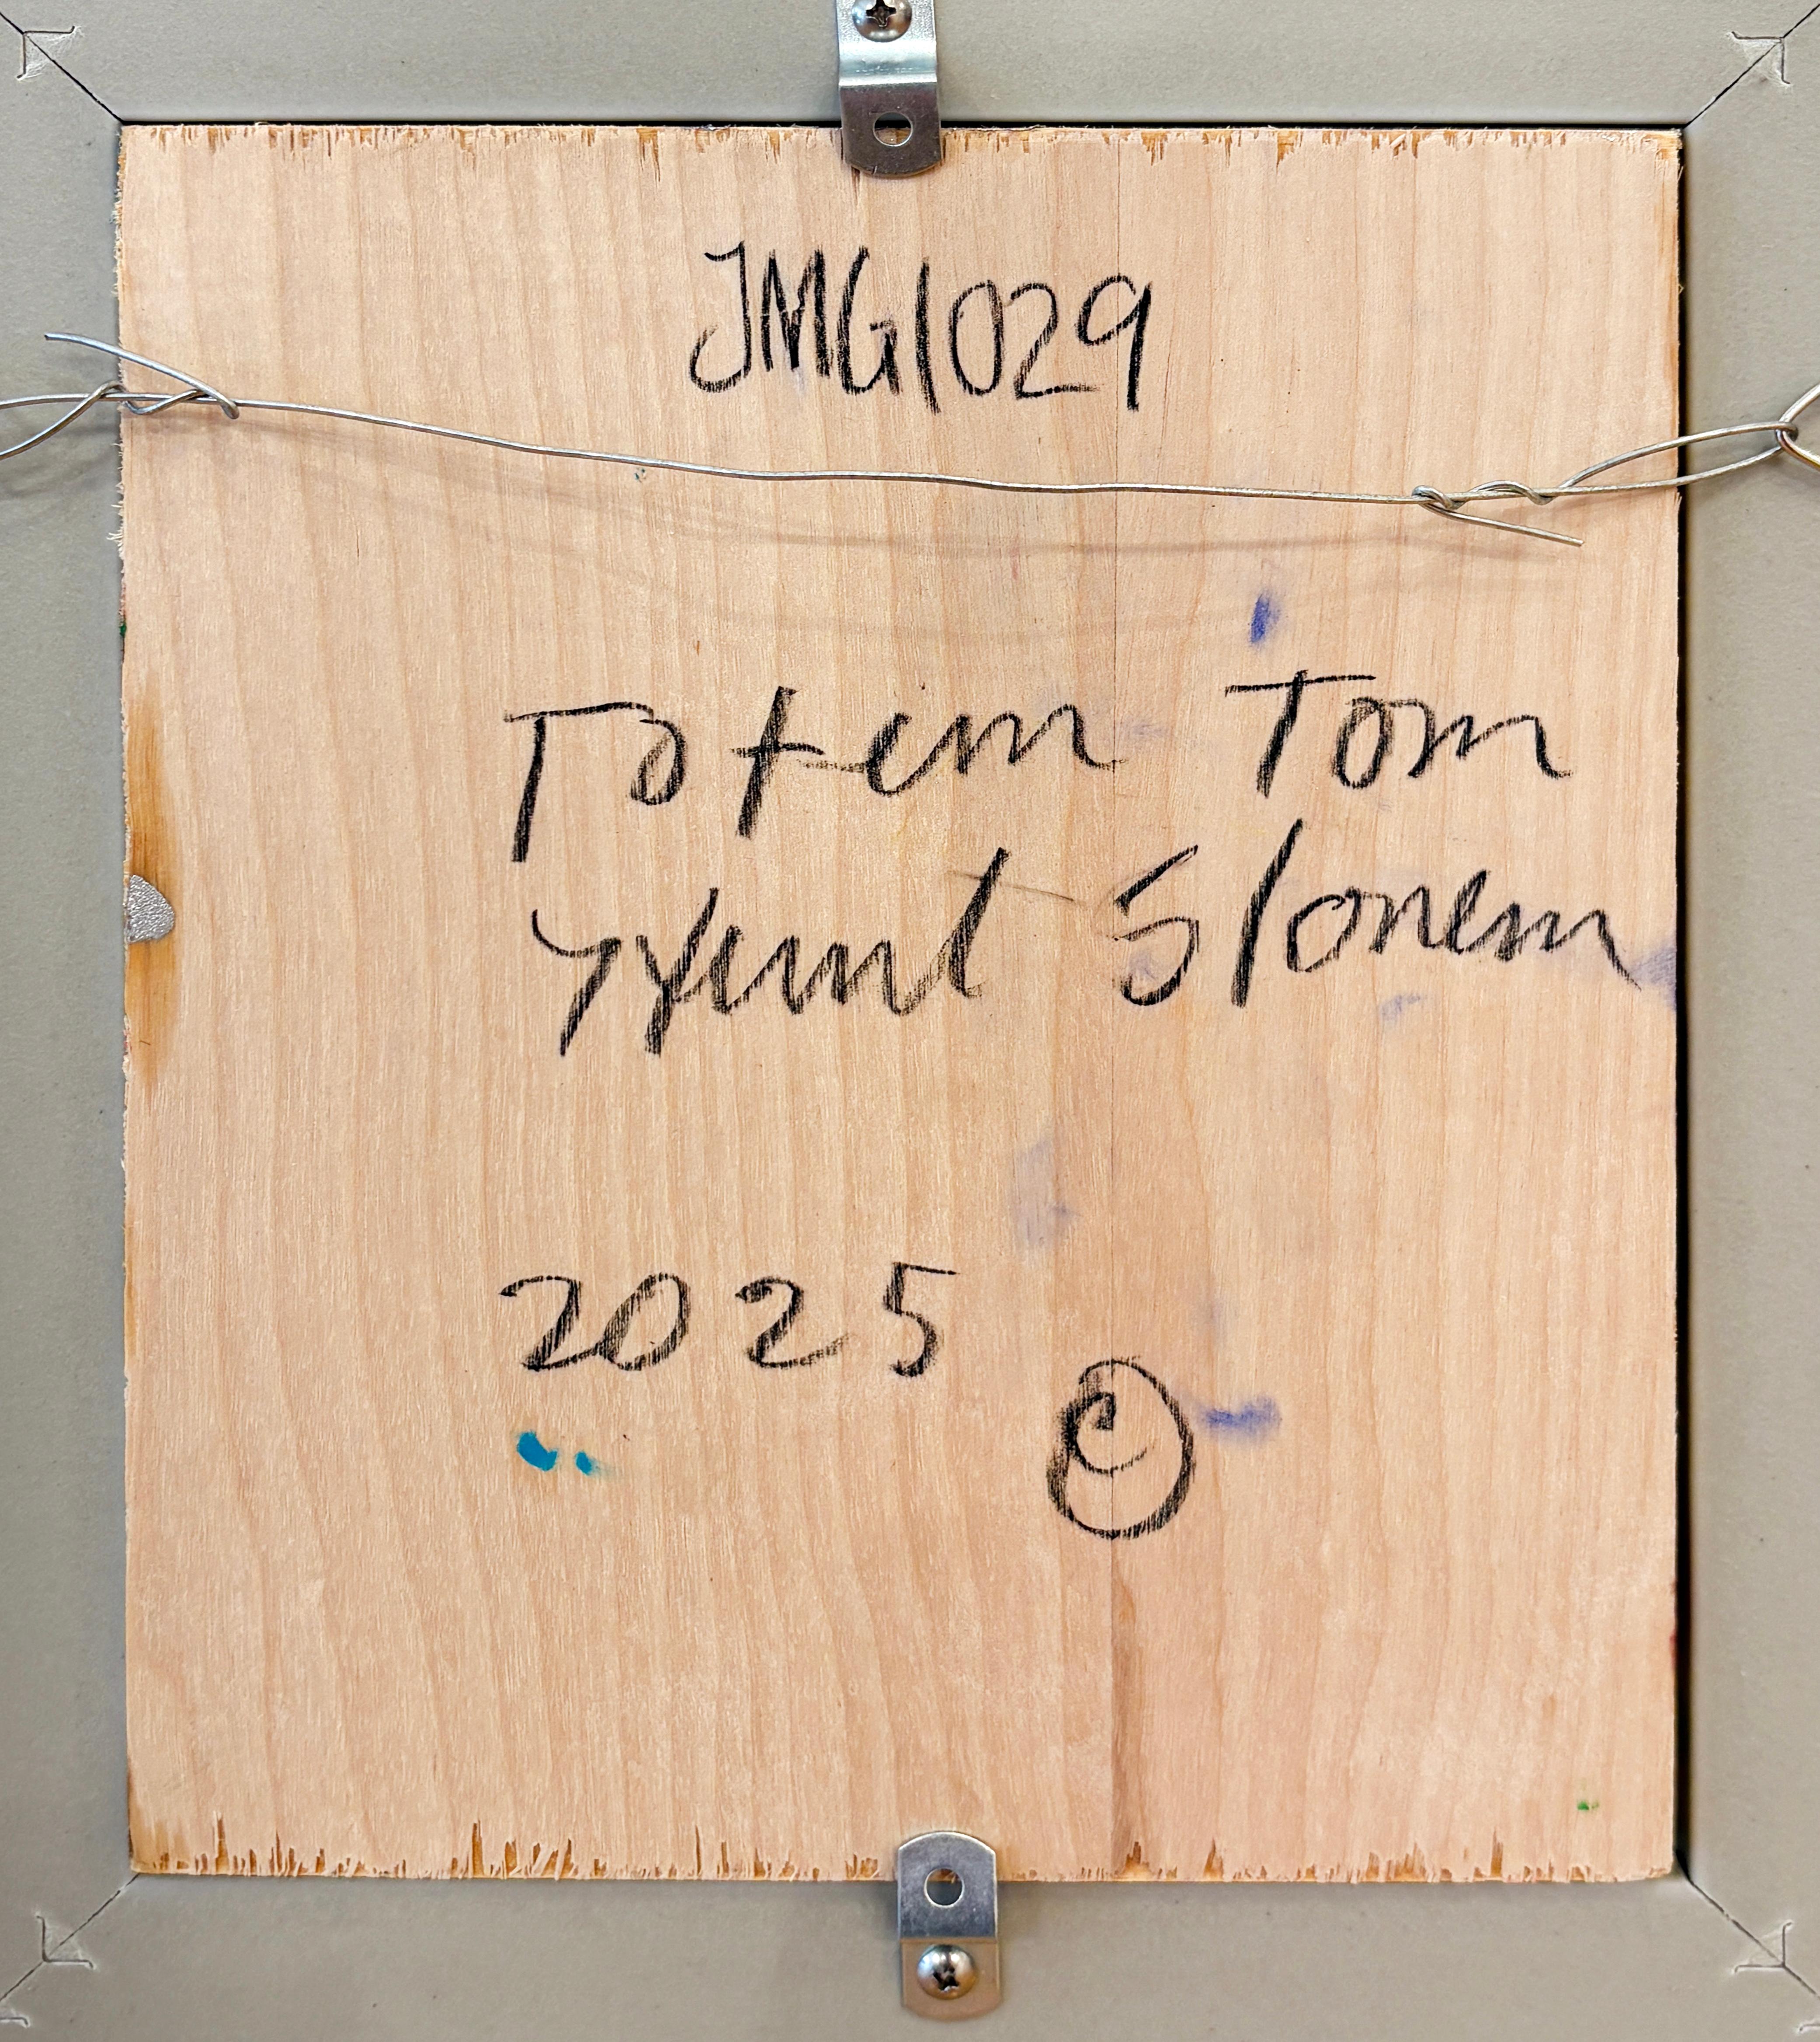 JMG1029
Totem Tom
Slonem
2025
©